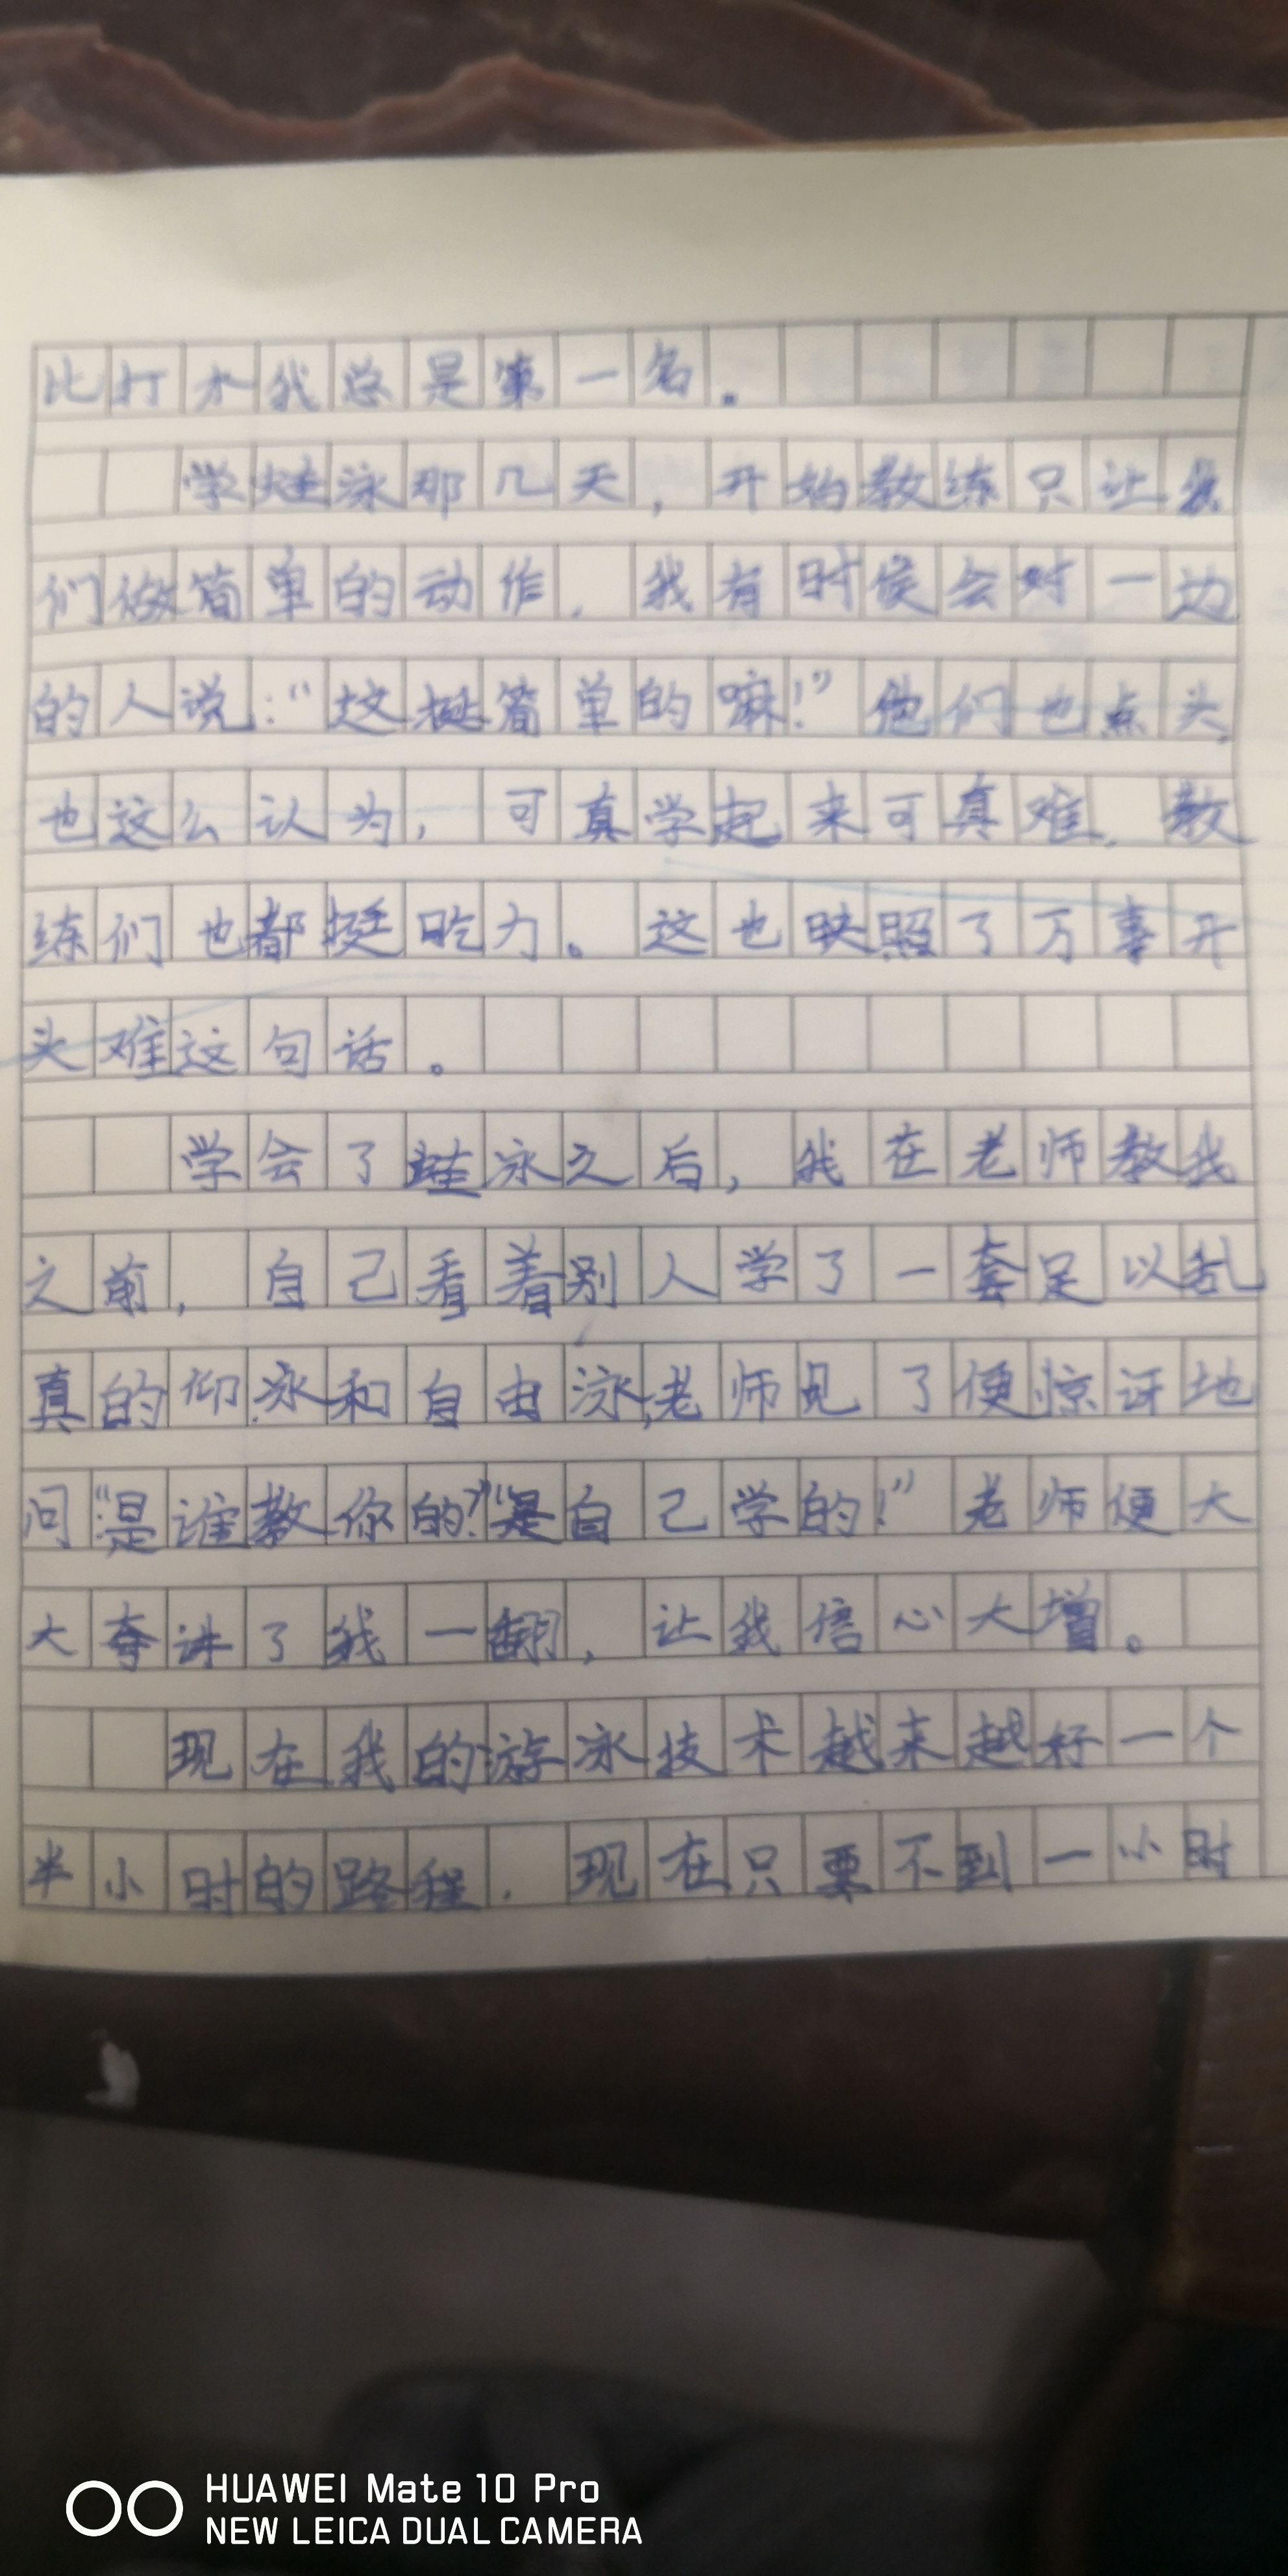 比打水我总是第一名。
学蛙泳那几天，开始教练只让我
们做简单的动作，我有时候会对一边
的人说：“这挺简单的嘛！”他们也点头，
也这么认为，可真学起来可真难，教
练们也都挺吃力。这也映照了万事开
头难这句话。
学会了蛙泳之后，我在老师教我
之前，自己看着别人学了一套足以乱
真的仰泳和自由泳，老师见了便惊讶地
问“是谁教你的？”“是自己学的！”老师便大
大夸讲了我一翻，让我信心大增。
现在我的游泳技术越来越好一个
半小时的路程，现在只要不到一小时
HUAWEI Mate 10 Pro
NEW LEICA DUAL CAMERA